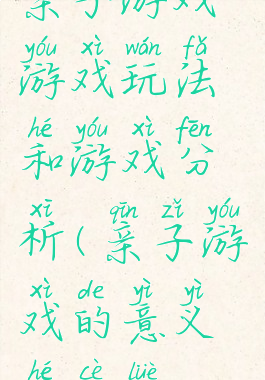 亲子游戏
yóu xì wán fǎ
游戏玩法
hé yóu xì fēn
和游戏分
xī qīn zǐ yóu
析(亲子游
xì de yì yì
戏的意义
hé cè lüè